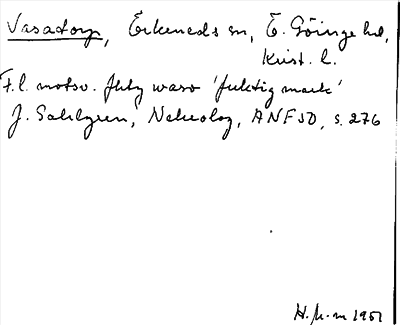 Vasatorp, Örkeneds sn, Ö. Göinge hd,
Krist. l.
F.l. motsv. fhty waso 'fuktig mark'
J. Sahlgren, Nekrolog, ANF 50, s. 276
H. 1951